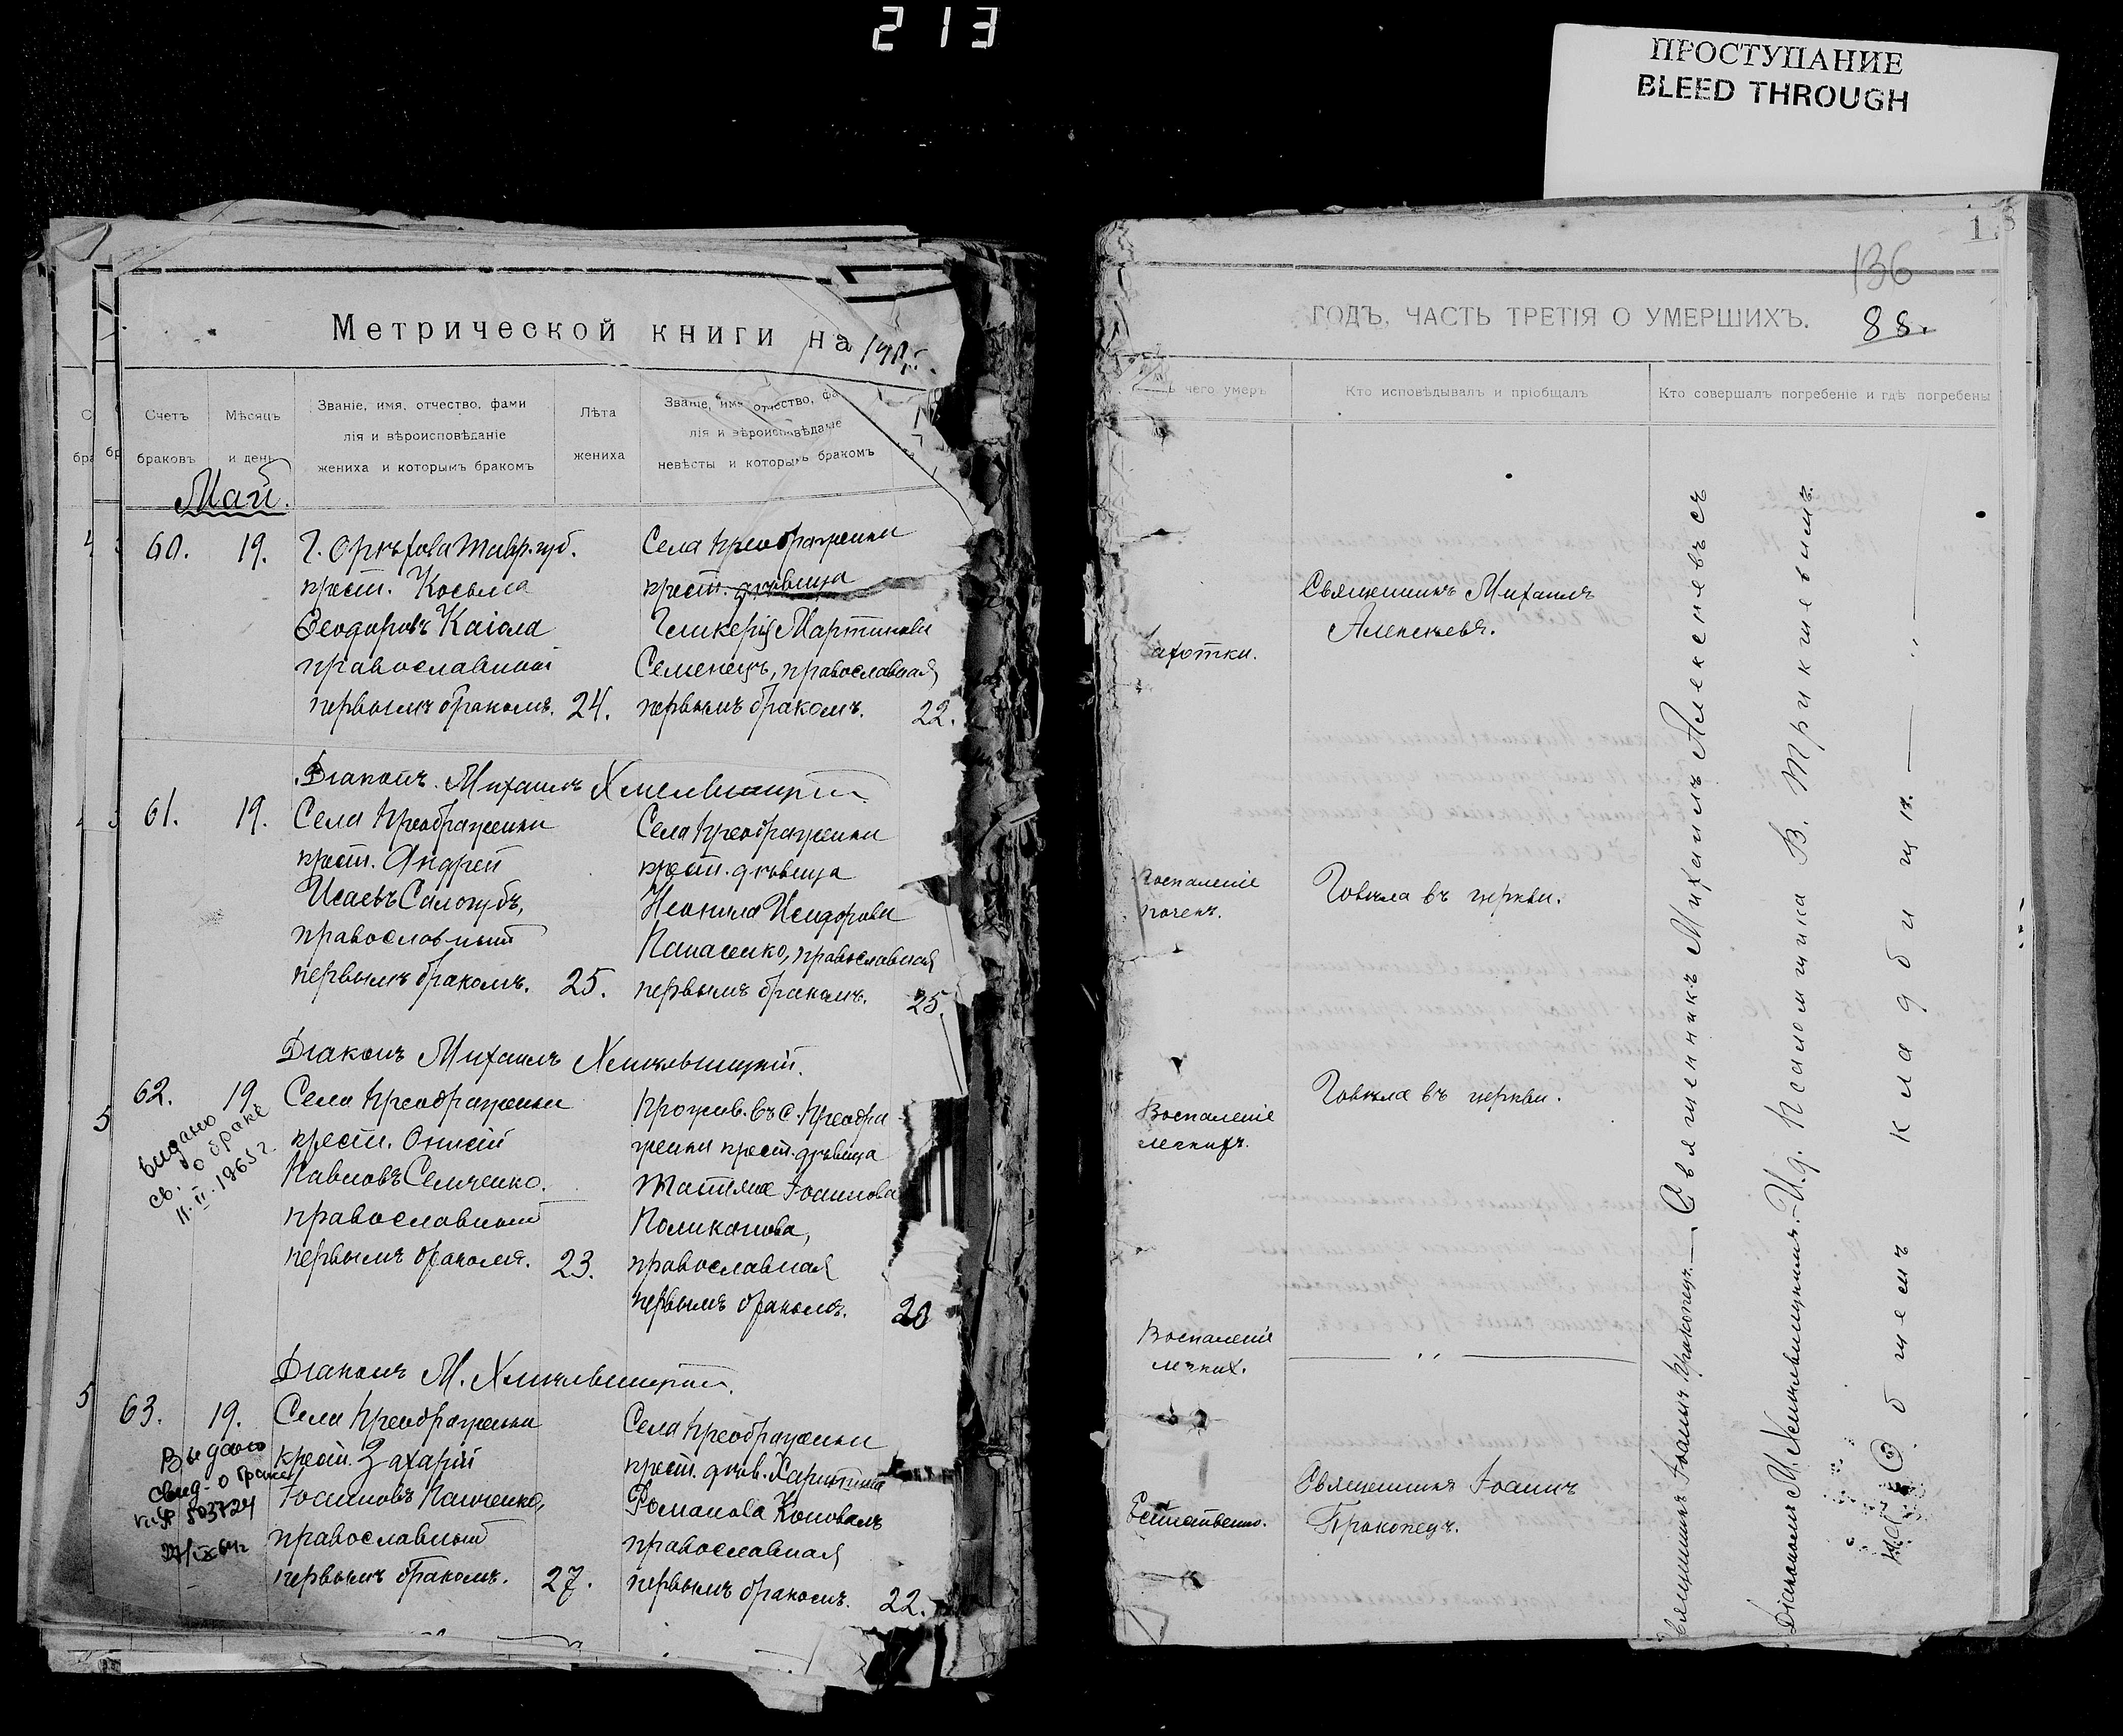 213
ПРОСТУПАНИЕ
BLEED THROUGH
Метрической книги на
Счетъ
браковъ
Мѣсяцъ
и день
Званіе, имя, отчество, фами
лія и вѣроисповѣданіе
жениха и которымъ бракомъ
Лѣта
жениха
Званіе, имя, отчество, фа
лія и вѣроисповѣданіе
невѣсты и которымъ бракомъ
Май.
60. 19.
Г. Орѣхова Тавр. губ.
крест. Косьма
Ѳеодоровъ Каіола
православный
первымъ бракомъ. 24.
Села Преображенки
крест. дѣвица
Гликерія Мартинова
Семенецъ, православная
первымъ бракомъ. 22.
Діаконъ Михаилъ Хмельницкій
61. 19.
Села Преображенки
крест. Андрей
Исаевъ Сологубъ,
православный
первымъ бракомъ. 25.
Села Преображенки
крест. дѣвица
Неонила Исидорова
Панасенко, православная
первымъ бракомъ. 25.
Діаконъ Михаилъ Хмельницкій.
62. 19
видано
св. о браке
11.II.1965 г.
Села Преображенки
крест. Онисій
Павловъ Семченко.
православный
первымъ бракомъ. 23.
Прожив. въ с. Преобра
женки крест. дѣвица
Татіана Іоаннова
Поликанова,
православная
первымъ бракомъ. 20
Діаконъ М. Хмельницкій.
63. 19.
Выдано
свид. о браке
503724
Села Преображенки
крест. Захарій
Іоанновъ Панченко,
православный
первымъ бракомъ. 27.
Села Преображенки
крест. дѣв. Харитина
Романова Коновалъ
православная
первымъ бракомъ. 22.
136
ГОДЪ, ЧАСТЬ ТРЕТІЯ О УМЕРШИХЪ. 88.
чего умеръ
Кто исповѣдывалъ и пріобщалъ
Кто совершалъ погребеніе и гдѣ погребены
чахотки.
Священникъ Михаилъ
Алексѣевъ.
Воспаленіе
почекъ.
Говѣла въ церкви.
Воспаленіе
легкихъ.
Говѣла въ церкви.
Воспаленіе
легких.
Естественно.
Священникъ Іоаннъ
Прокопецъ.
Священникъ Іоаннъ Прокопецъ. — Священникъ Михаилъ Алексѣевъ съ
Діакономъ М. Хмельницкимъ. И.д. Псаломщика В.
На Общемъ кладбищѣ.